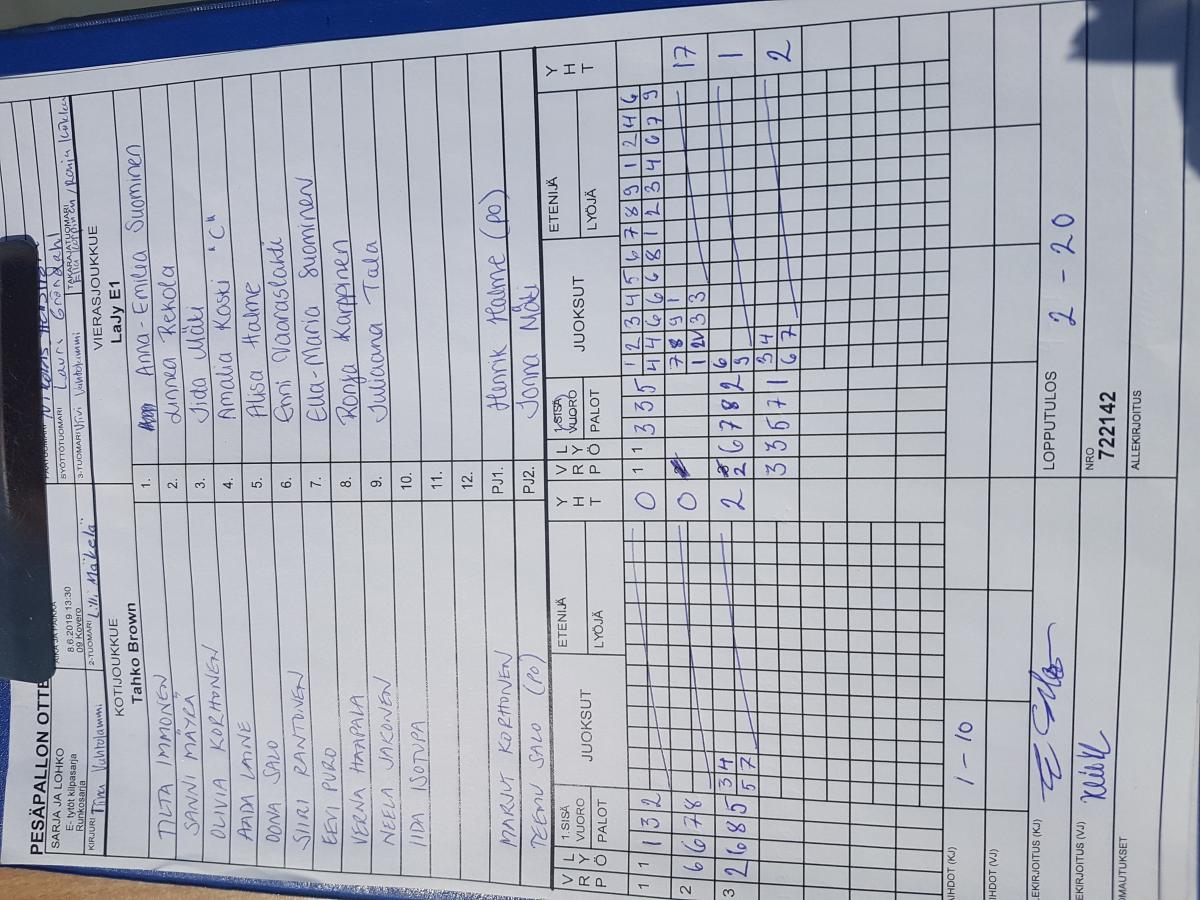 PESÄPALLON OTTE
SARJA JA LOHKO
E- tytöt kilpasarja
Runkosarja
AIKA JA PAIKKA
8.6.2019 13:30
09 Kovero
SYÖTTÖTUOMARI Lauri Gröndahl
KIRJURI Tiina Vahtolammi
2-TUOMARI Lilli Mäkelä
3-TUOMARI Viivi Vahtolammi
TAKARAJATUOMARI
KOTIJOUKKUE
Tahko Brown
VIERASJOUKKUE
LaJy E1
TILTA IMMONEN 1. Anna-Emilia Suominen
SANNI MÄYRÄ 2. Linnea Rekola
OLIVIA KORHONEN 3. Iida Mäki
AADA LAINE 4. Amalia Koski "C"
OONA SALO 5. Alisa Halme
SIIRI RANTONEN 6. Enni Vaaraslahti
EEVI PURO 7. Ella-Maria Suominen
VERNA HAAPALA 8. Ronja Karppinen
NEELA JAKONEN 9. Juliaana Tala
IIDA ISOTUPA 10.
11.
12.
MARJUT KORHONEN PJ1. Henrik Halme (PO)
TEEMU SALO (PO) PJ2. Jonna Mäki
VRP LYÖ 1.SISÄ VUORO PALOT JUOKSUT ETENIJÄ LYÖJÄ YHT VRP LYÖ 1.SISÄ VUORO PALOT JUOKSUT ETENIJÄ LYÖJÄ YHT
1 1 1 3 2 0 1 1 3 3 5 1 2 3 4 5 6 7 8 9 1 2 4 6
4 4 6 6 6 8 1 2 3 4 6 7 9
2 6 6 7 8 0 7 8 9 1 17
1 2 3 3
3 2 6 8 5 3 4 2 2 2 6 7 8 2 6 1
5 7 9
3 3 5 7 1 3 4 2
6 7
IHDOT (KJ) 1-10
IHDOT (VJ)
LEKIRJOITUS (KJ)
LOPPUTULOS 2 - 20
EKIRJOITUS (VJ)
NRO
722142
OMAUTUKSET
ALLEKIRJOITUS